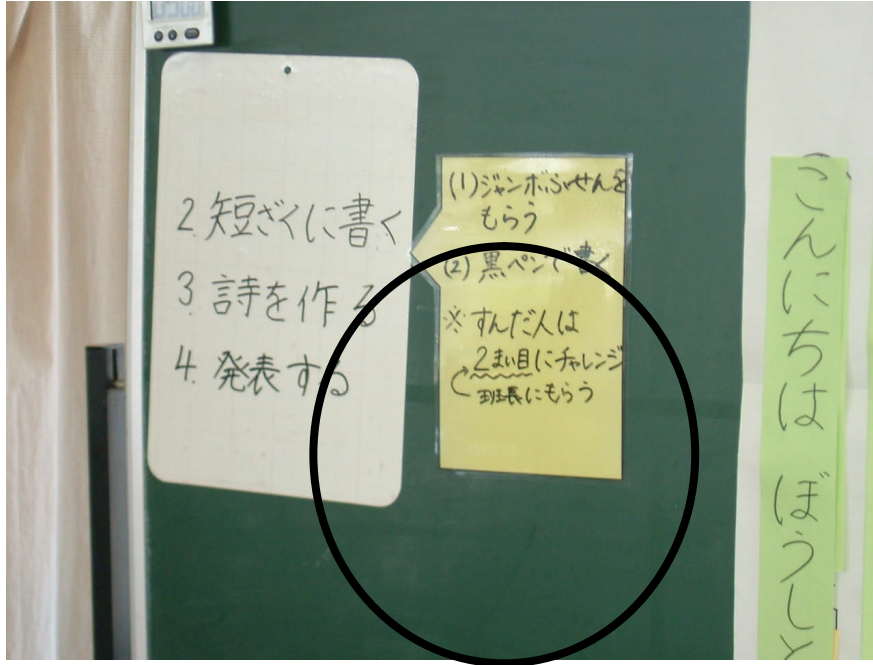 2. 短ざくに書く
3. 詩を作る
4. 発表する
(1)ジャンボふせんを
もらう
(2) 黒ペンで書く
※すんだ人は
2まい目にチャレンジ
班長にもらう
こんにちは ぼうしと